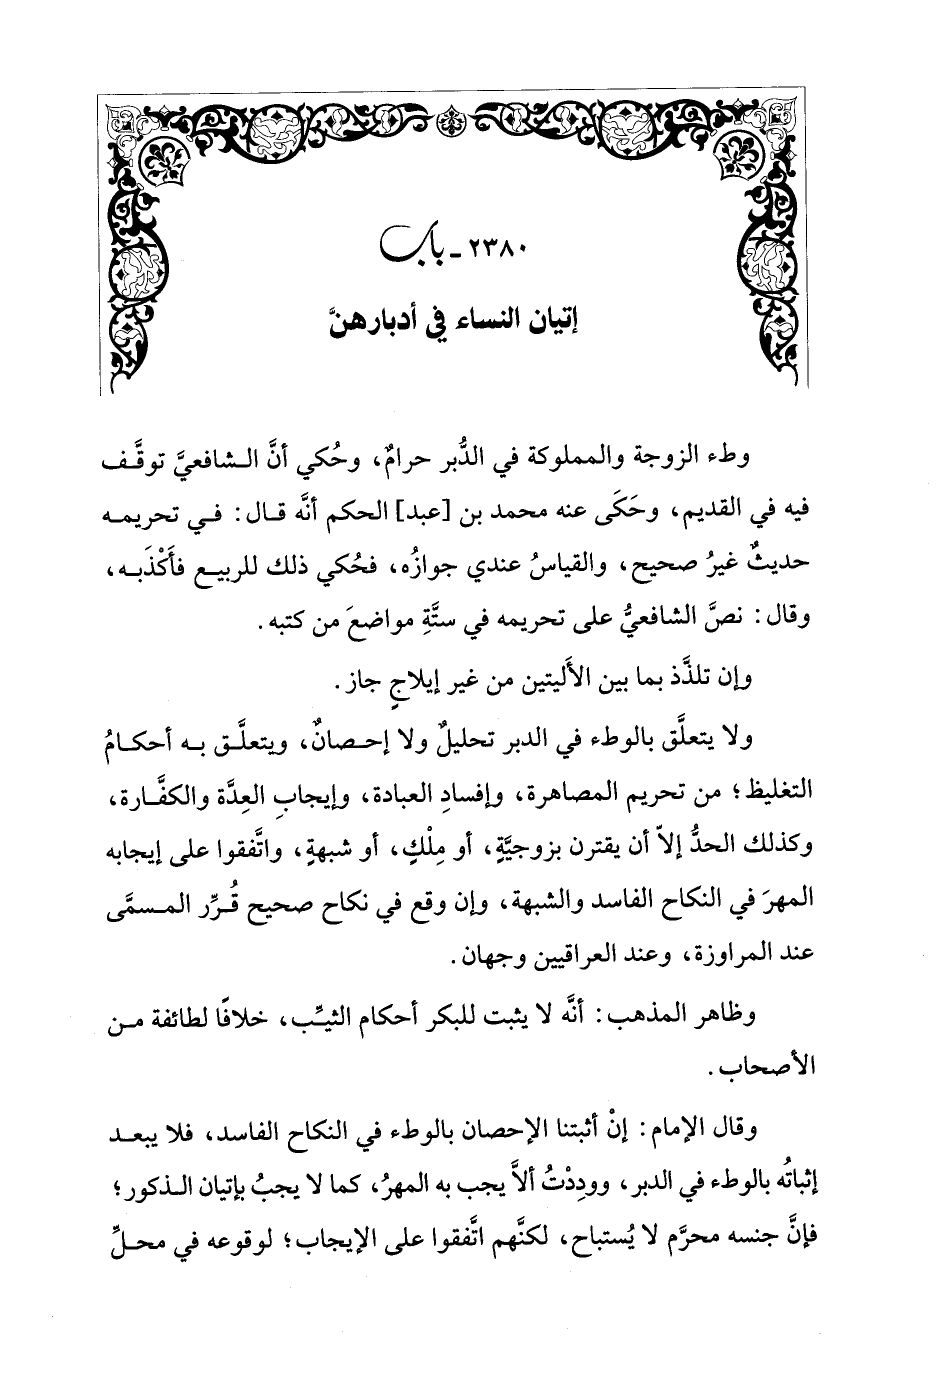 ٢٣٨٠ - باب
إتيان النساء في أدبارهنَّ
وطء الزوجة والمملوكة في الدُّبر حرامٌ، وحُكي أنَّ الشافعيَّ توقَّف
فيه في القديم، وحَكَى عنه محمد بن [عبد] الحكم أنَّه قال: في تحريمه
حديثٌ غيرُ صحيح، والقياسُ عندي جوازُه، فحُكي ذلك للربيع فأَكْذَبه،
وقال: نصَّ الشافعيُّ على تحريمه في ستَّةِ مواضعَ من كتبه.
وإن تلذَّذ بما بين الأَليتين من غير إيلاجٍ جاز.
ولا يتعلَّق بالوطء في الدبر تحليلٌ ولا إحصانٌ، ويتعلَّق به أحكامُ
التغليظ؛ من تحريم المصاهرة، وإفسادِ العبادة، وإيجابِ العِدَّة والكفَّارة،
وكذلك الحدُّ إلاّ أن يقترن بزوجيَّةٍ، أو مِلْكٍ، أو شبهةٍ، واتَّفقوا على إيجابه
المهرَ في النكاح الفاسد والشبهة، وإن وقع في نكاح صحيح قُرِّر المسمَّى
عند المراوزة، وعند العراقيين وجهان.
وظاهر المذهب: أنَّه لا يثبت للبكر أحكام الثيِّب، خلافًا لطائفة من
الأصحاب.
وقال الإمام: إنْ أثبتنا الإحصان بالوطء في النكاح الفاسد، فلا يبعد
إثباتُه بالوطء في الدبر، ووددْتُ ألاَّ يجب به المهرُ، كما لا يجبُ بإتيان الذكور؛
فإنَّ جنسه محرَّم لا يُستباح، لكنَّهم اتَّفقوا على الإيجاب؛ لوقوعه في محلِّ